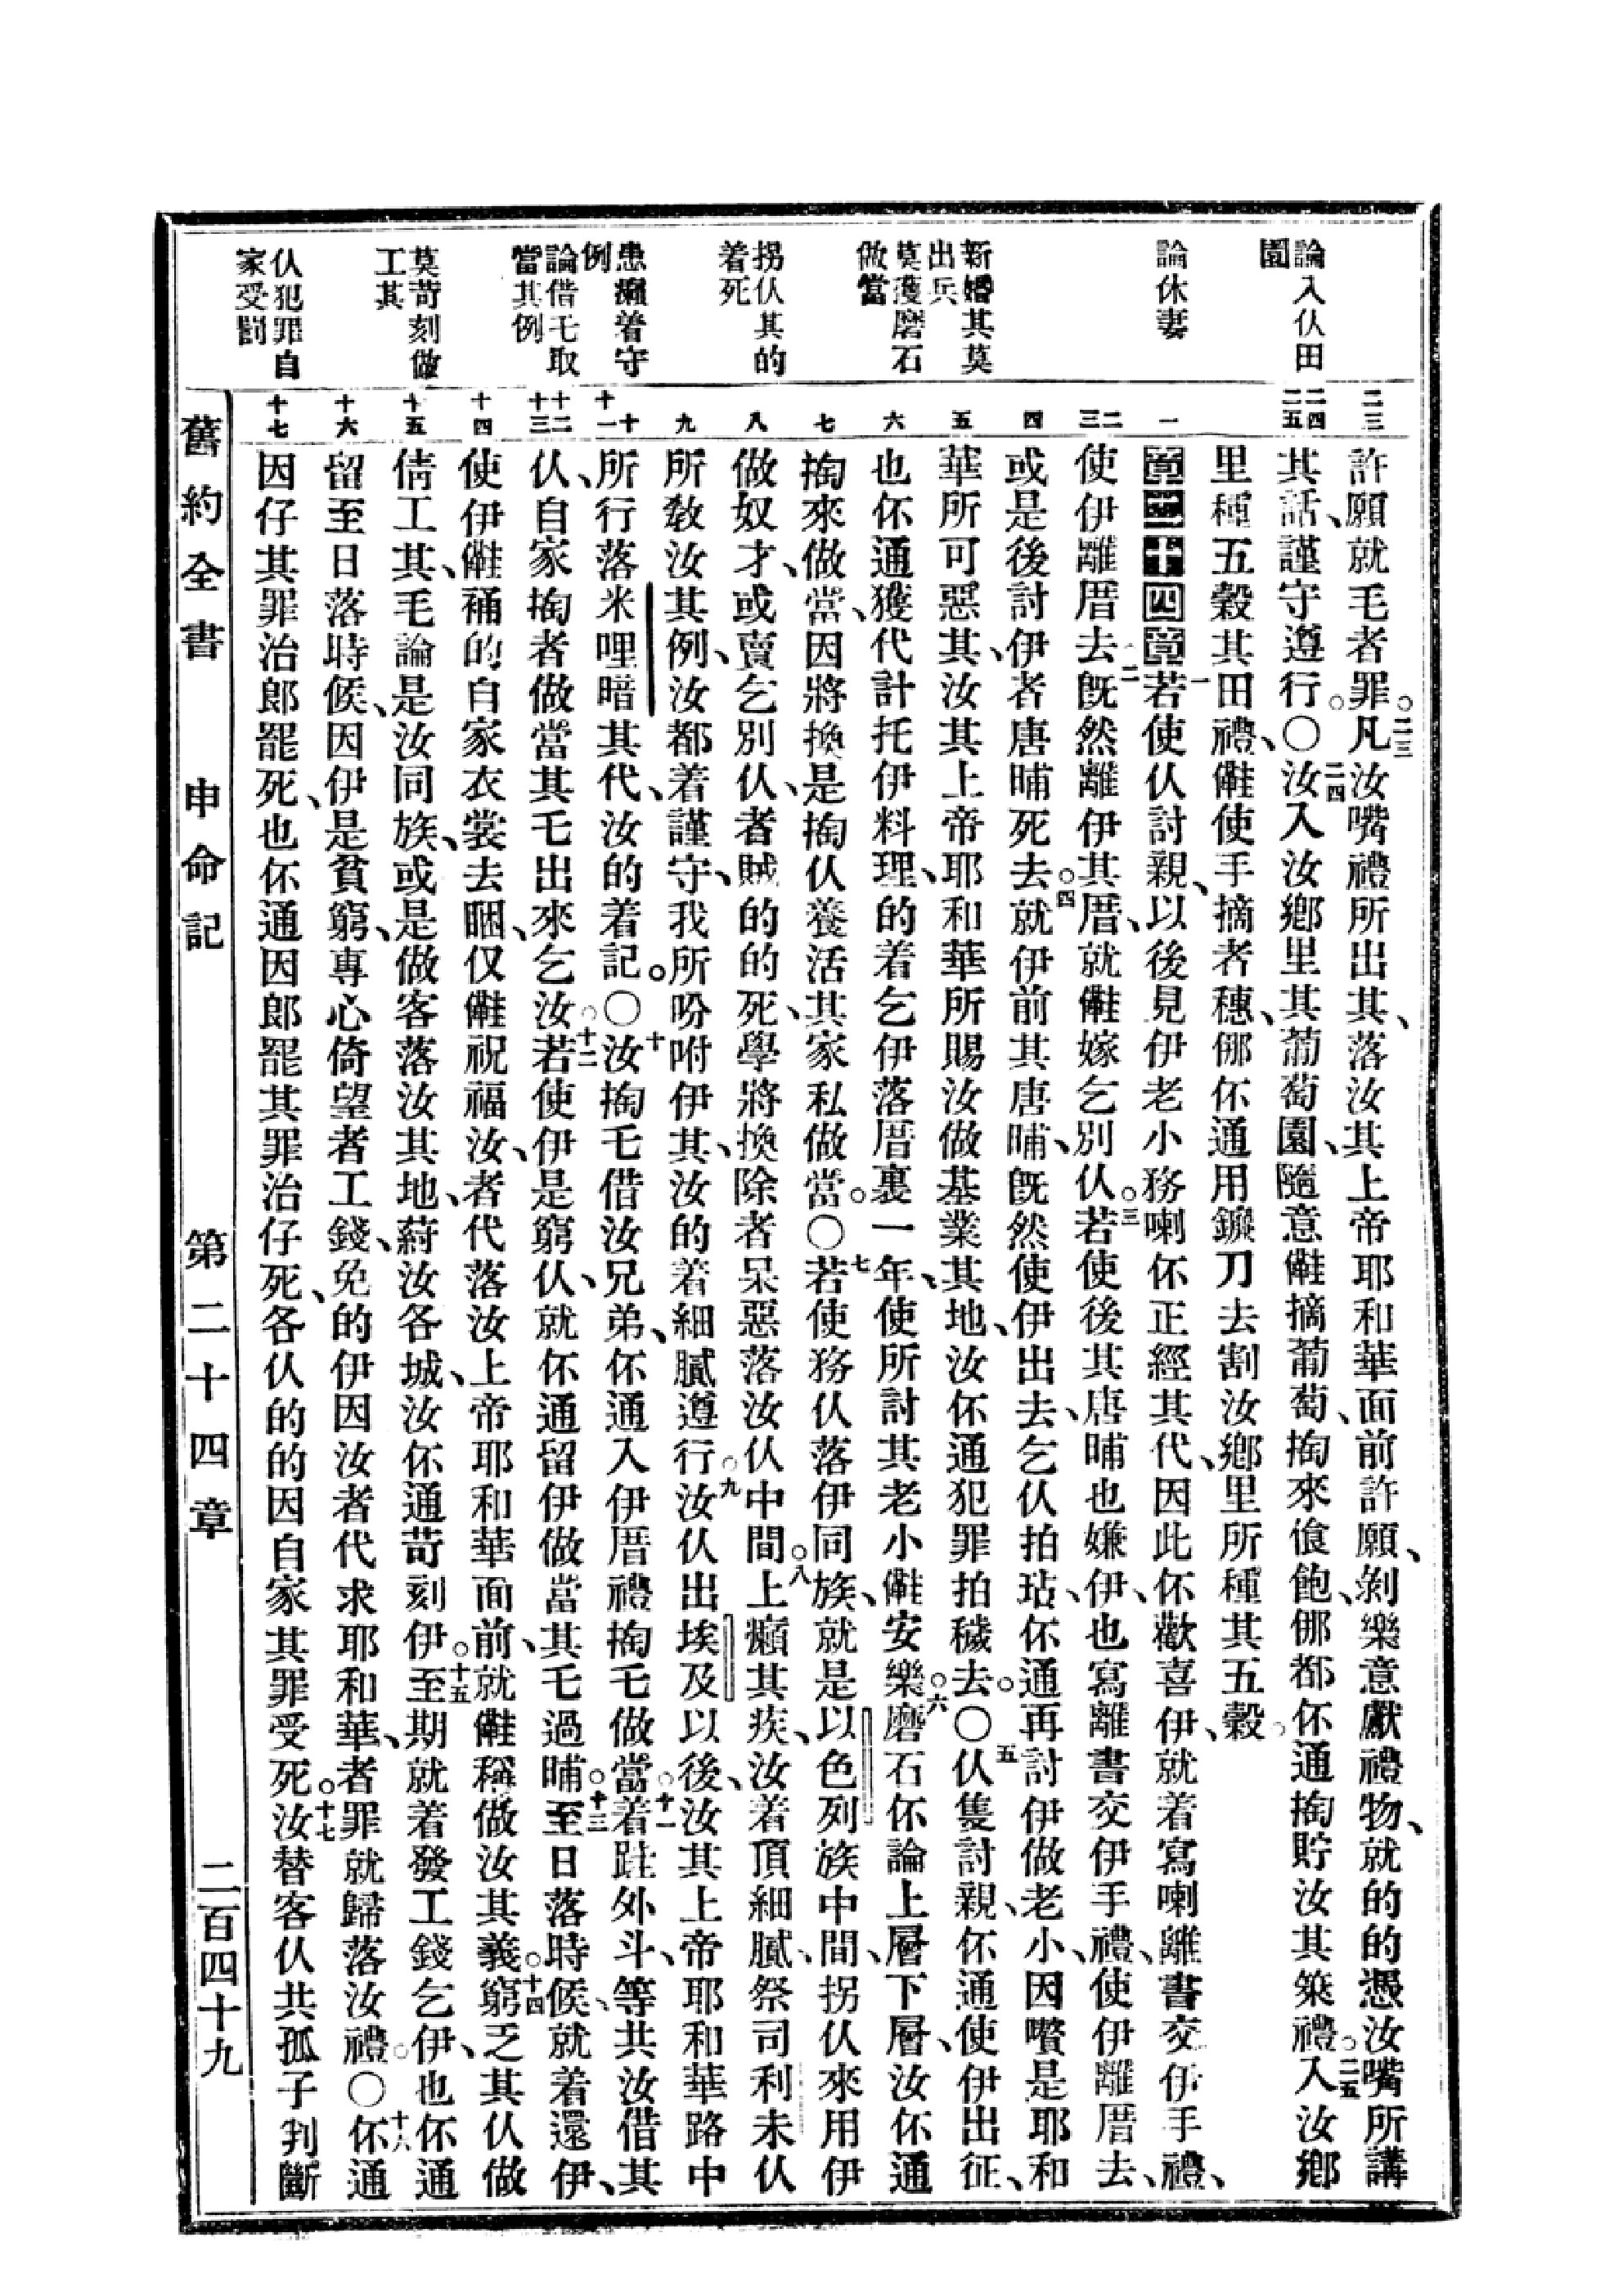 論入㑚田
園
論休妻
新婚其莫
出兵
莫獲磨石
做當
拐㑚其的
着死
患癩着守
例
論借乇取
當其例
莫苛刻做
工其
㑚犯罪自
家受罰
二三
二四
二五
一
二
三
四
五
六
七
八
九
十
十一
十二
十三
十四
十五
十六
十七
許願就毛者罪。二三凡汝嘴禮所出其、落汝其上帝耶和華面前許願、剝樂意獻禮物、就的的憑汝嘴所講
其話、謹守遵行。〇二四汝入汝鄕里其葡萄園、隨意㒕摘葡萄、掏來飠飽、㑚都伓通掏貯汝其䇲禮。二五入汝鄕
里種五穀其田禮、㒕使手摘者穗、㑚伓通用鐝刀去割汝鄕里所種其五穀。
第二十四章一若使仈討親、以後見伊老小務喇伓正經其代、因此伓歡喜伊、就着寫喇離書交伊手禮、
使伊離厝去。二旣然離伊其厝、就㒕嫁乞別仈。三若使後其唐晡也嫌伊、也寫離書交伊手禮、使伊離厝去、
或是後討伊者唐晡死去。四就伊前其唐晡、旣然使伊出去、乞仈拍玷、伓通再討伊做老小、因嚽是耶和
華所可惡其、汝其上帝耶和華所賜汝做基業其地、汝伓通犯罪拍穢去。〇五仈隻討親、伓通使伊出征、
也伓通獲代計托伊料理、的着乞伊落厝裏一年、使所討其老小㒕安樂。六磨石伓論上層下層、汝伓通
掏來做當、因將換是掏仈養活其家私做當。〇七若使務仈落伊同族、就是以色列族中間、拐仈來用伊
做奴才、或賣乞別仈、者賊的的死、學將換除者呆惡落汝仈中間。八上癩其疾、汝着頂細膩、祭司利未仈
所敎汝其例、汝都着謹守、我所吩咐伊其、汝的着細膩遵行。九汝仈出埃及以後、汝其上帝耶和華路中
所行落米哩暗其代、汝的着記。〇十汝掏乇借汝兄弟、伓通入伊厝禮掏乇做當。十一着跍外斗、等共汝借其
仈、自家掏者做當其乇出來乞汝。十二若使伊是窮仈、就伓通留伊做當其乇過晡。十三至日落時候、就着還伊、
使伊㒕補的自家衣裳去睏、仅㒕祝福汝、者代落汝上帝耶和華面前、就㒕稱做汝其義。十四窮乏其仈做
倩工其、毛論是汝同族、或是做客落汝其地、蒔汝各城、汝伓通苛刻伊。十五至期就着發工錢乞伊、也伓通
留至日落時候、因伊是貧窮、專心倚望者工錢、免的伊因汝者代求耶和華、者罪就歸落汝禮。〇十六伓通
因仔其罪治郎罷死、也伓通因郎罷其罪治仔死、各仈的的因自家其罪受死。十七汝替客仈共孤子判斷
舊約全書　申命記　第二十四章　二百四十九